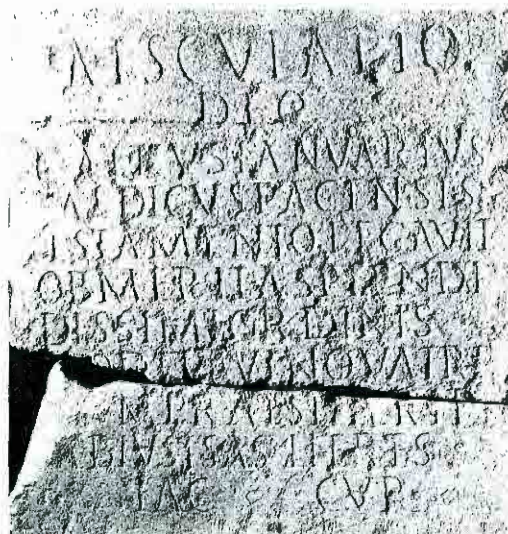 AESCVLAPIO
DEO
C ATTIVS IANVARIVS
MEDICVS PACENSIS
TESTAMENTO LEGAVIT
OB MERITA SPLENDI
DISSIMI ORDINIS
PRAESTITERIT
BIVS ISAS HERES
FAC CVR